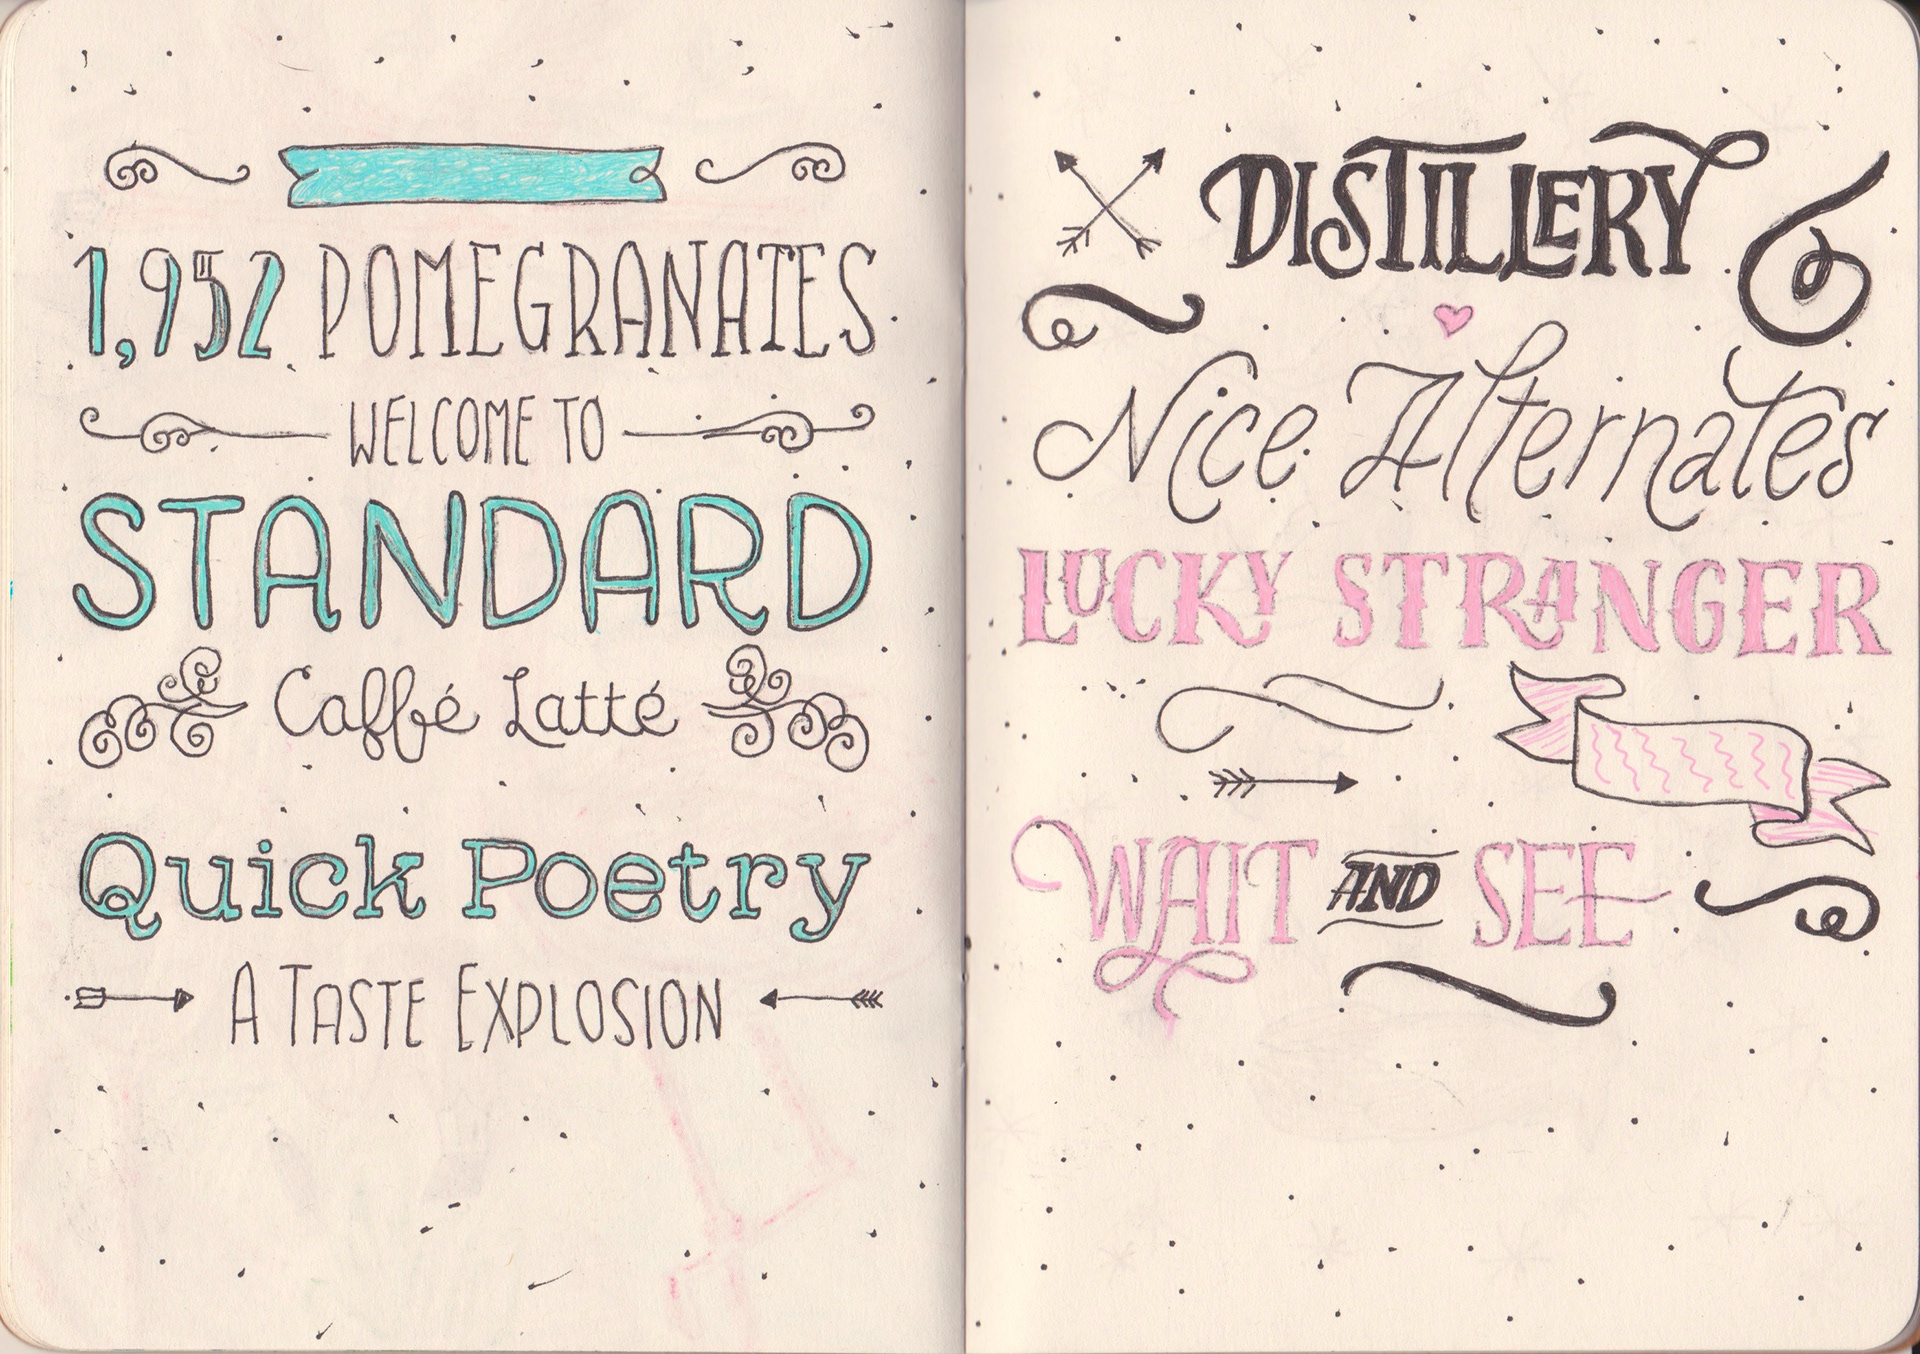 1,952 POMEGRANATES
WELCOME TO
STANDARD
Caffé Latté
Quick Poetry
A TASTE EXPLOSION
DISTILLERY
Nice Alternates
LUCKY STRANGER
WAIT AND SEE